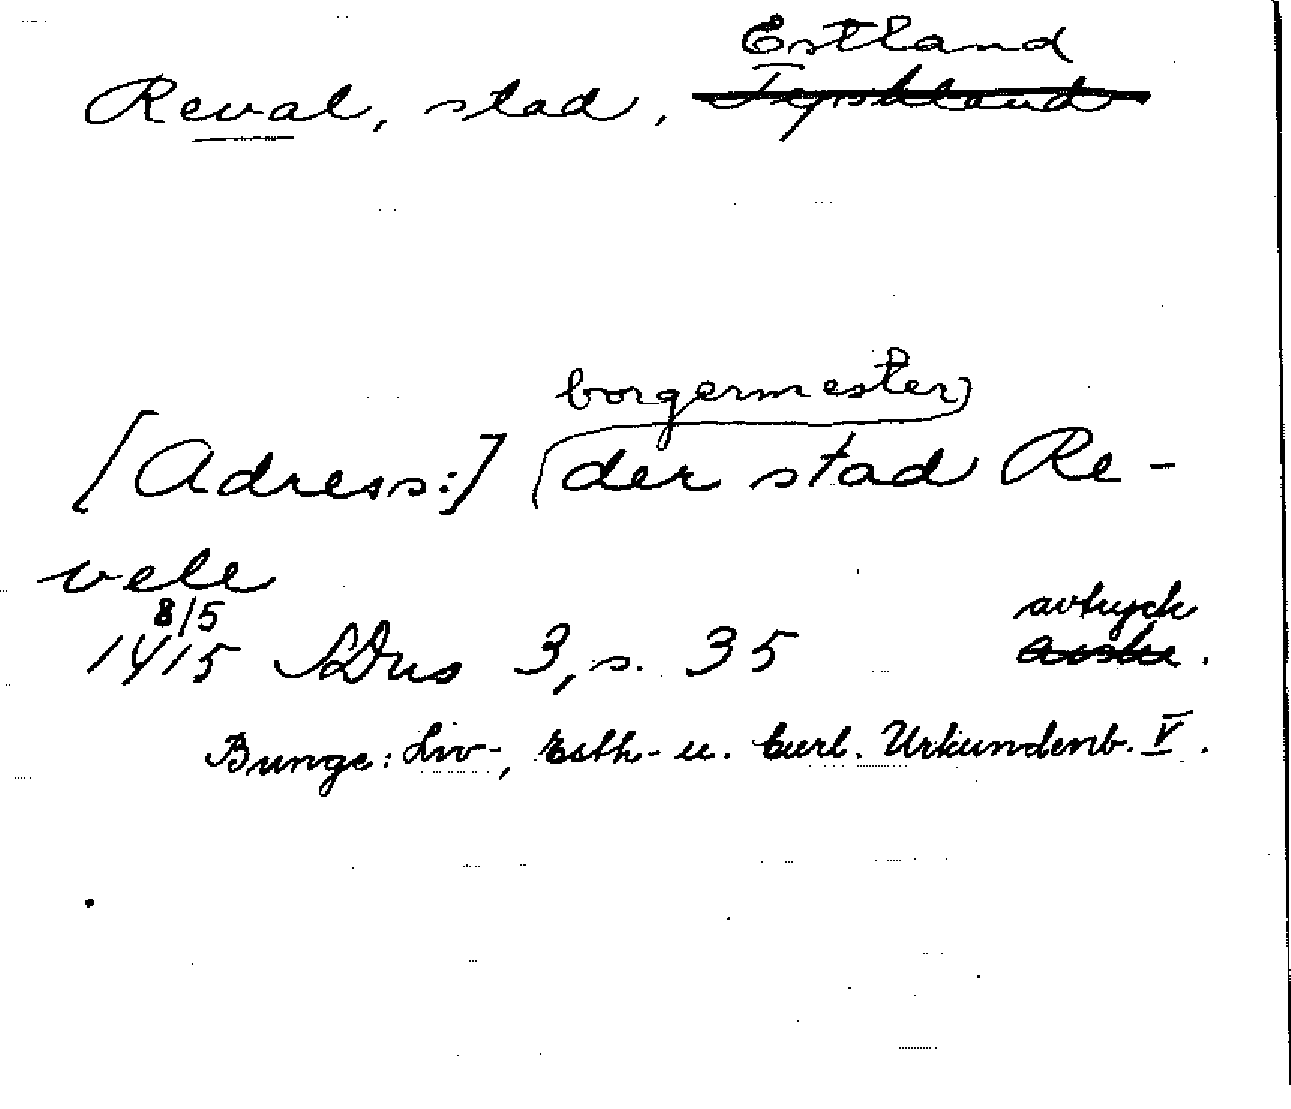 Estland
Reval, stad, Tyskland
borgermester
[Adress:] der stad Re-
vele
8/5
1415 SDns 3, s. 35
avtryck
avskr.
Bunge: Liv-, Esth- u. Curl. Urkundenb. V.